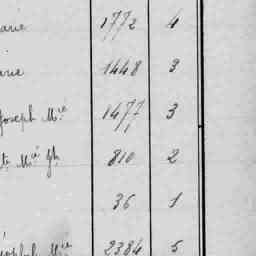 arie 1772 4
arie 1448 3
Joseph Mie 1477 3
te Mie Jh 810 2
36 1
Joseph Mie 2384 5